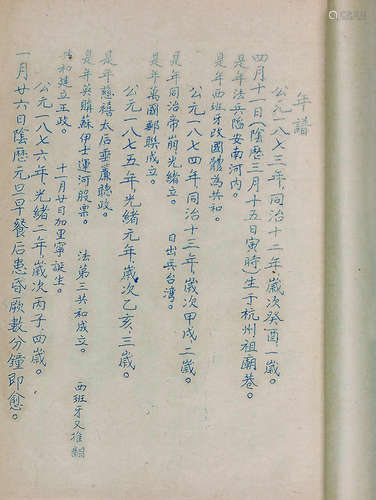 年譜
公元一八七三年,同治十二年,歲次癸酉一歲。
四月十一日(陰歷三月十五日寅時)生于杭州祖廟巷。
是年法兵陷安南河内。
是年西班牙改國體為共和。
公元一八七四年,同治十三年,歲次甲戌二歲。
是年同治帝崩光緒立。 日出兵台灣。
是年萬國郵聯成立。
公元一八七五年,光緒元年,歲次乙亥,三歲。
是年慈禧太后垂簾聽政。
是年英購蘇伊士運河股票。 法第三共和成立。 西班牙又推翻
共和建立王政。 十一月廿日加里寧誕生。
公元一八七六年,光緒二年,歲次丙子,四歲。
一月廿六日陰歷元旦早餐后患昏厥數分鐘即愈。